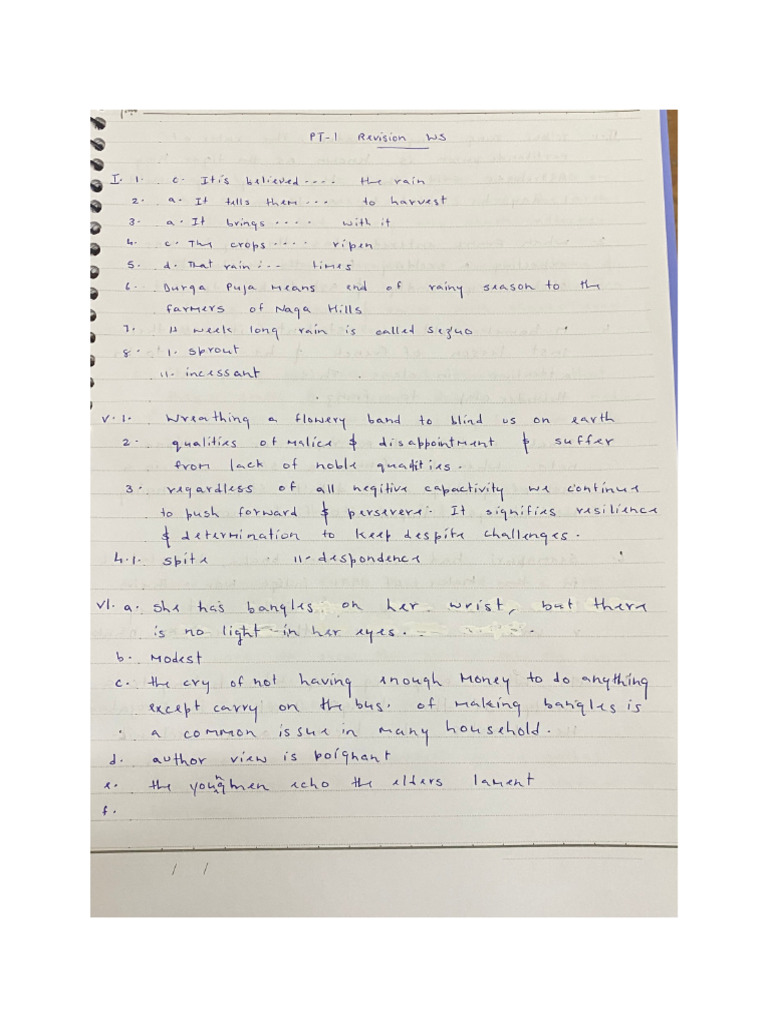 PT-1 Revision WS
I. 1. c. It is believed .... the rain
2. a. It tells them ... to harvest
3. a. It brings .... with it
4. c. The crops .... ripen
5. d. That rain ... times
6. Durga Puja means end of rainy season to the
farmers of Naga Hills
7. week long rain is called sezuo
8. I. sprout
II. incessant
V. 1. Wreathing a flowery band to blind us on earth
2. qualities of malice & disappointment & suffer
from lack of noble quadities.
3. regardless of all negitive capactivity we continue
to push forward & persevere. It signifies resilience
& determination to keep despite challenges.
4. I. spite II. despondence
VI. a. she has bangles on her wrist, but there
is no light in her eyes.
b. Modest
c. the cry of not having enough money to do anything
except carry on the bus. of making bangles is
a common issue in many household.
d. author view is poignant
e. the youngmen echo the elders lament
f.
/ /